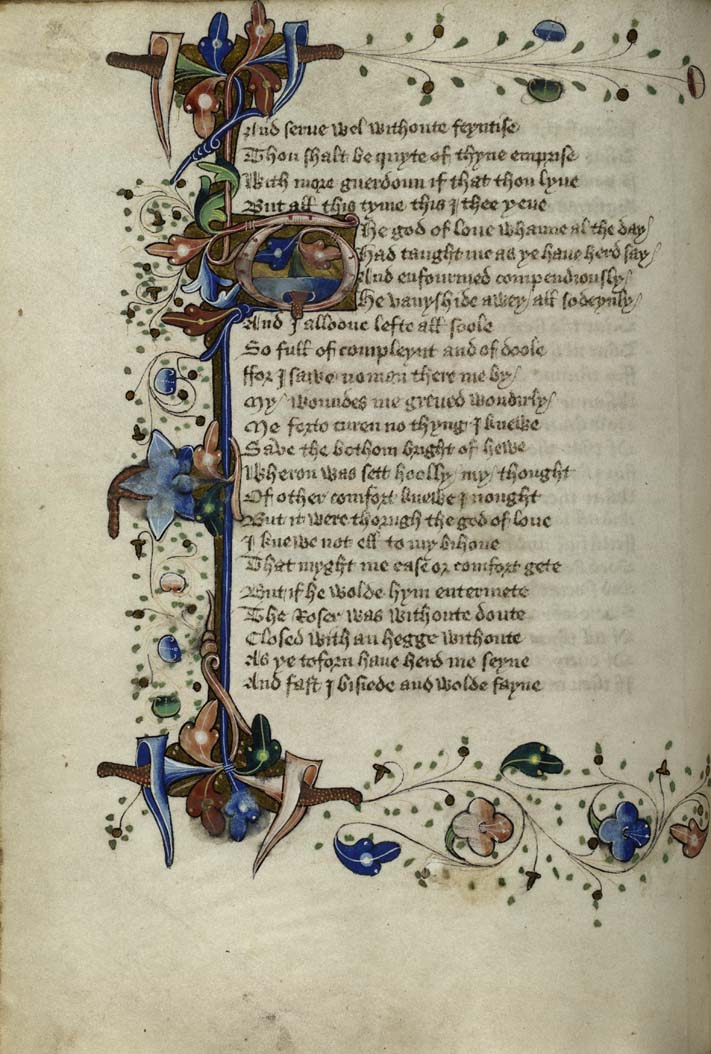 And serue wel withoute feyntise
Thou shalt be quyte of thyne emprise
With more guerdoun if that thou lyue
But all this tyme this I thee yeue
The god of loue whanne al the day
Had taught me as ye haue herd say
And enfourmed compendiously
He vanyshide awey all sodeynly
And I alloone lefte all soole
So full of compleynt and of doole
ffor I sawe no man there me by
My woundes me greued wondirly
Me forto curen no thyng I knewe
Save the bothom bright of hewe
Wheron was sett hoolly my thought
Of other comfort knewe I nought
But it were thorugh the god of loue
I knewe not ell to my bihoue
That myght me ease or comfort gete
But if he wolde hym entermete
The Roser was withoute doute
Closed with an hegge withoute
As ye toforn haue herd me seyne
And fast I bisiede and wolde fayne